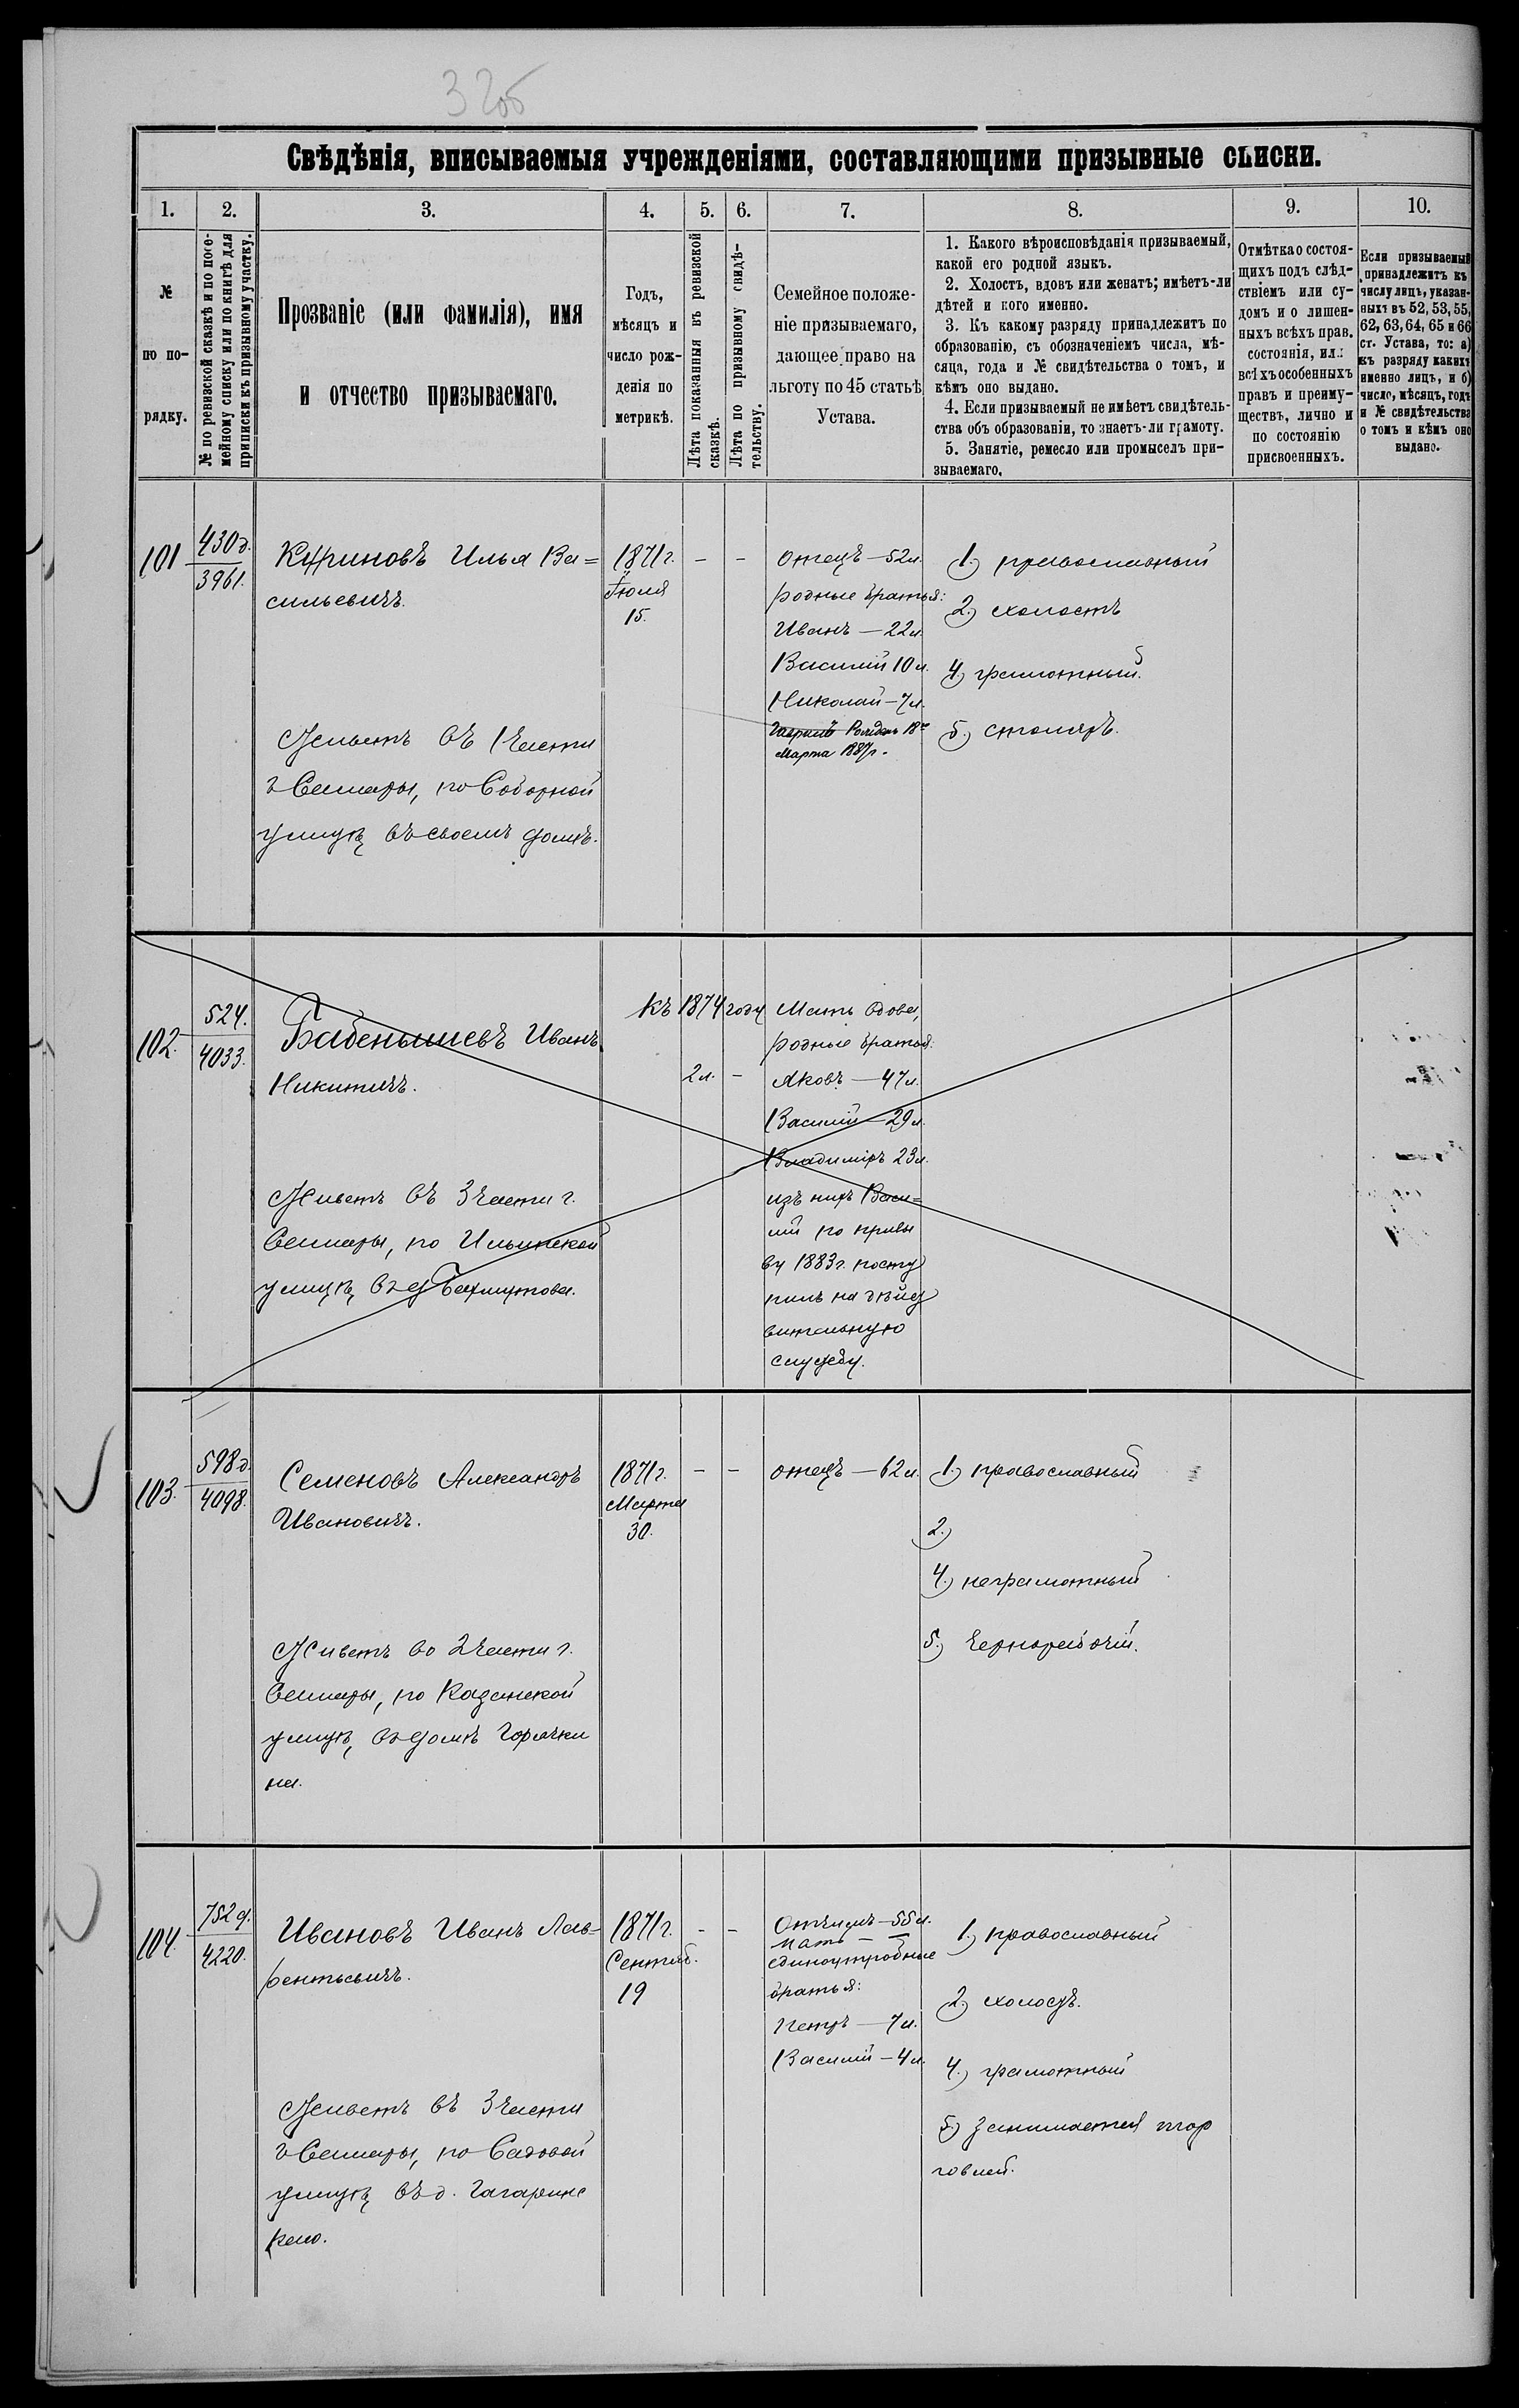 32об
Свѣдѣнія, вписываемыя учрежденіями, составляющими призывные списки.
1.
2.
3.
4.
5.
6.
7.
8.
9.
10.
№
по по-
рядку.
№ по ревизской сказкѣ и по посе-
мейному списку или по книгѣ для
приписки къ призывному участку.
Прозваніе (или фамилія), имя
и отчество призываемаго.
Годъ,
мѣсяцъ и
число рож-
денія по
метрикѣ.
Лѣта показанныя въ ревизской
сказкѣ.
Лѣта по призывному свидѣ-
тельству.
Семейное положе-
ніе призываемаго,
дающее право на
льготу по 45 статьѣ
Устава.
1. Какого вѣроисповѣданія призываемый,
какой его родной языкъ.
2. Холостъ, вдовъ или женатъ; имѣетъ-ли
дѣтей и кого именно.
3. Къ какому разряду принадлежитъ по
образованію, съ обозначеніемъ числа, мѣ-
сяца, года и № свидѣтельства о томъ, и
кѣмъ оно выдано.
4. Если призываемый не имѣетъ свидѣтель-
ства объ образованіи, то знаетъ-ли грамоту.
5. Занятіе, ремесло или промыселъ при-
зываемаго.
Отмѣтка о состоя-
щихъ подъ слѣд-
ствіемъ или су-
домъ и о лишен-
ныхъ всѣхъ прав.
состоянія, или
всѣхъ особенныхъ
правъ и преиму-
ществъ, лично и
по состоянію
присвоенныхъ.
Если призываемый
принадлежитъ къ
числу лицъ, указан-
ныхъ въ 52, 53, 55,
62, 63, 64, 65 и 66
ст. Устава, то: а)
къ разряду какихъ
именно лицъ, и б)
число, мѣсяцъ, годъ
и № свидѣтельства
о томъ и кѣмъ оно
выдано.
101
430д.
3961.
Куриновъ Илья Ва=
сильевичъ.
Живетъ въ 1 части
г Самары, по Соборной
улицѣ въ своемъ домѣ.
1871 г.
Іюля
15.
–
–
отецъ – 52 л.
родные братья:
Иванъ – 22 л.
Василій 10 л.
Николай – 7 л.
Родился 18го
Марта 1887 г.
1.) православный
2.) холостъ
4.) грамотный.
5.) столяръ.
102.
524.
4033.
Бабенышевъ Иванъ
Никитичъ.
Живетъ въ 3 части г.
Самары, по Ильинской
улицѣ, въ д Бахмутова.
Къ 1874 году
2 л.
–
Мать вдова,
родные братья:
Яковъ – 47 л.
Василій – 29 л.
Владиміръ 23 л.
изъ нихъ Васи=
лій по призы
ву 1883 г. посту
пилъ на дѣйст
вительную
службу.
103.
598д.
4098.
Семеновъ Александръ
Ивановичъ.
Живетъ во 2 части г.
Самары, по Казанской
улицѣ, въ домѣ Горячки
на.
1871 г.
Марта
30.
–
–
отецъ – 62 л.
1.) православный
2.)
4.) неграмотный
5.) чернорабочій.
104.
752д.
4220.
Ивановъ Иванъ Лав-
рентьевичъ.
Живетъ въ 3 части
г Самары, по Садовой
улицѣ въ д. Гагаринс
каго.
1871 г.
Сентяб.
19
–
–
Отчимъ – 55 л.
мать – –
единоутробные
братья:
Петръ – 7 л.
Василій – 4 л.
1.) православный
2.) холостъ.
4.) грамотный
5.) занимается тор
говлей.